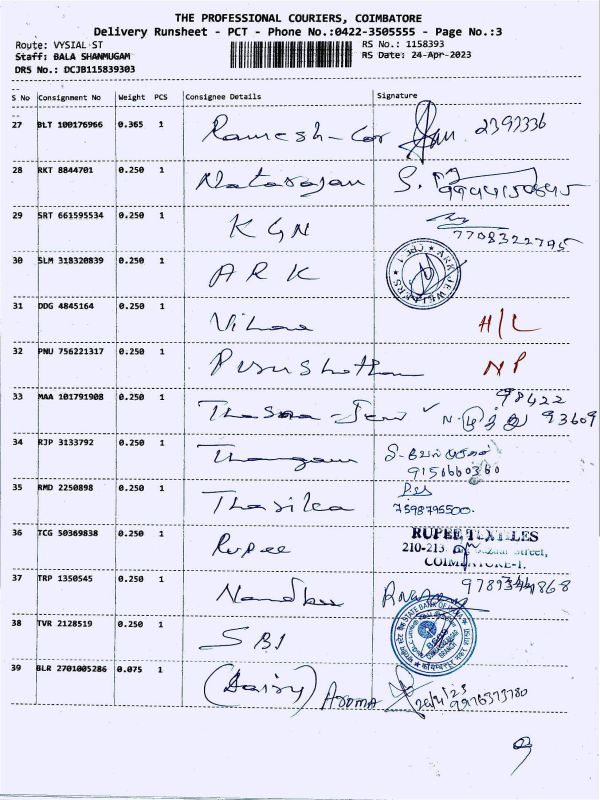 THE PROFESSIONAL COURIERS, COIMBATORE
Delivery Runsheet - PCT - Phone No.:0422-3505555 - Page No.:3
Route: VYSIAL ST RS No.: 1158393
Staff: BALA SHANMUGAM RS Date: 24-Apr-2023
DRS No.: DCJB115839303
S No Consignment No Weight PCS Consignee Details Signature
27 BLT 100176966 0.365 1 Ramesh-Car 2397336
28 RKT 8844701 0.250 1 Natarajan S.
29 SRT 661595534 0.250 1 KGN 7708322795
30 SLM 318320839 0.250 1 ARK ARK JEWELLERS
31 DDG 4845164 0.250 1 H/L
32 PNU 756221317 0.250 1 Purushotham NP
33 MAA 101791908 0.250 1 98422
93609
34 RJP 3133792 0.250 1 Thangam
9150660360
35 RMD 2250898 0.250 1 Thasika 7598795500.
36 TCG 50369838 0.250 1 Rupee RUPEE TEXTILES
210-213 Street,
COIMBATORE-1.
37 TRP 1350545 0.250 1
38 TVR 2128519 0.250 1 SBI STATE BANK OF INDIA
39 BLR 2701005286 0.075 1 (Daisy)